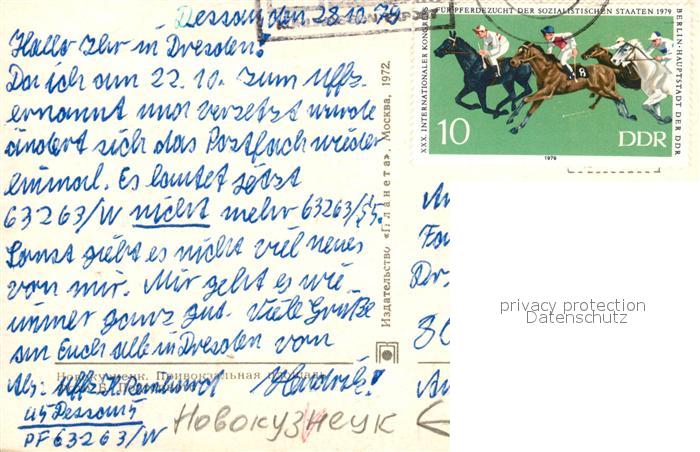 Dessau den 28.10.79
Hallo Ihr in Dresden!
Da ich am 22.10. zum Uffz.
ernannt und versetzt wurde
ändert sich das Postfach wieder
einmal. Es lautet jetzt
63263/W nicht mehr 63263/S5.
Sonst giebt es nicht viel neues
von mir. Mir geht es wie
immer ganz gut. Viele Grüße
an Euch alle in Dresden von
Abs: Uffz. Reinhard
45 Dessau 5
PF 63263/W
Новокузнецк. Привокзальная площадь
Новокузнецк
Издательство «Планета». Москва, 1972.
XXX. INTERNATIONALER KONGRESS FÜR PFERDEZUCHT DER SOZIALISTISCHEN STAATEN 1979
BERLIN-HAUPTSTADT DER DDR
10
DDR
1979
privacy protection
Datenschutz